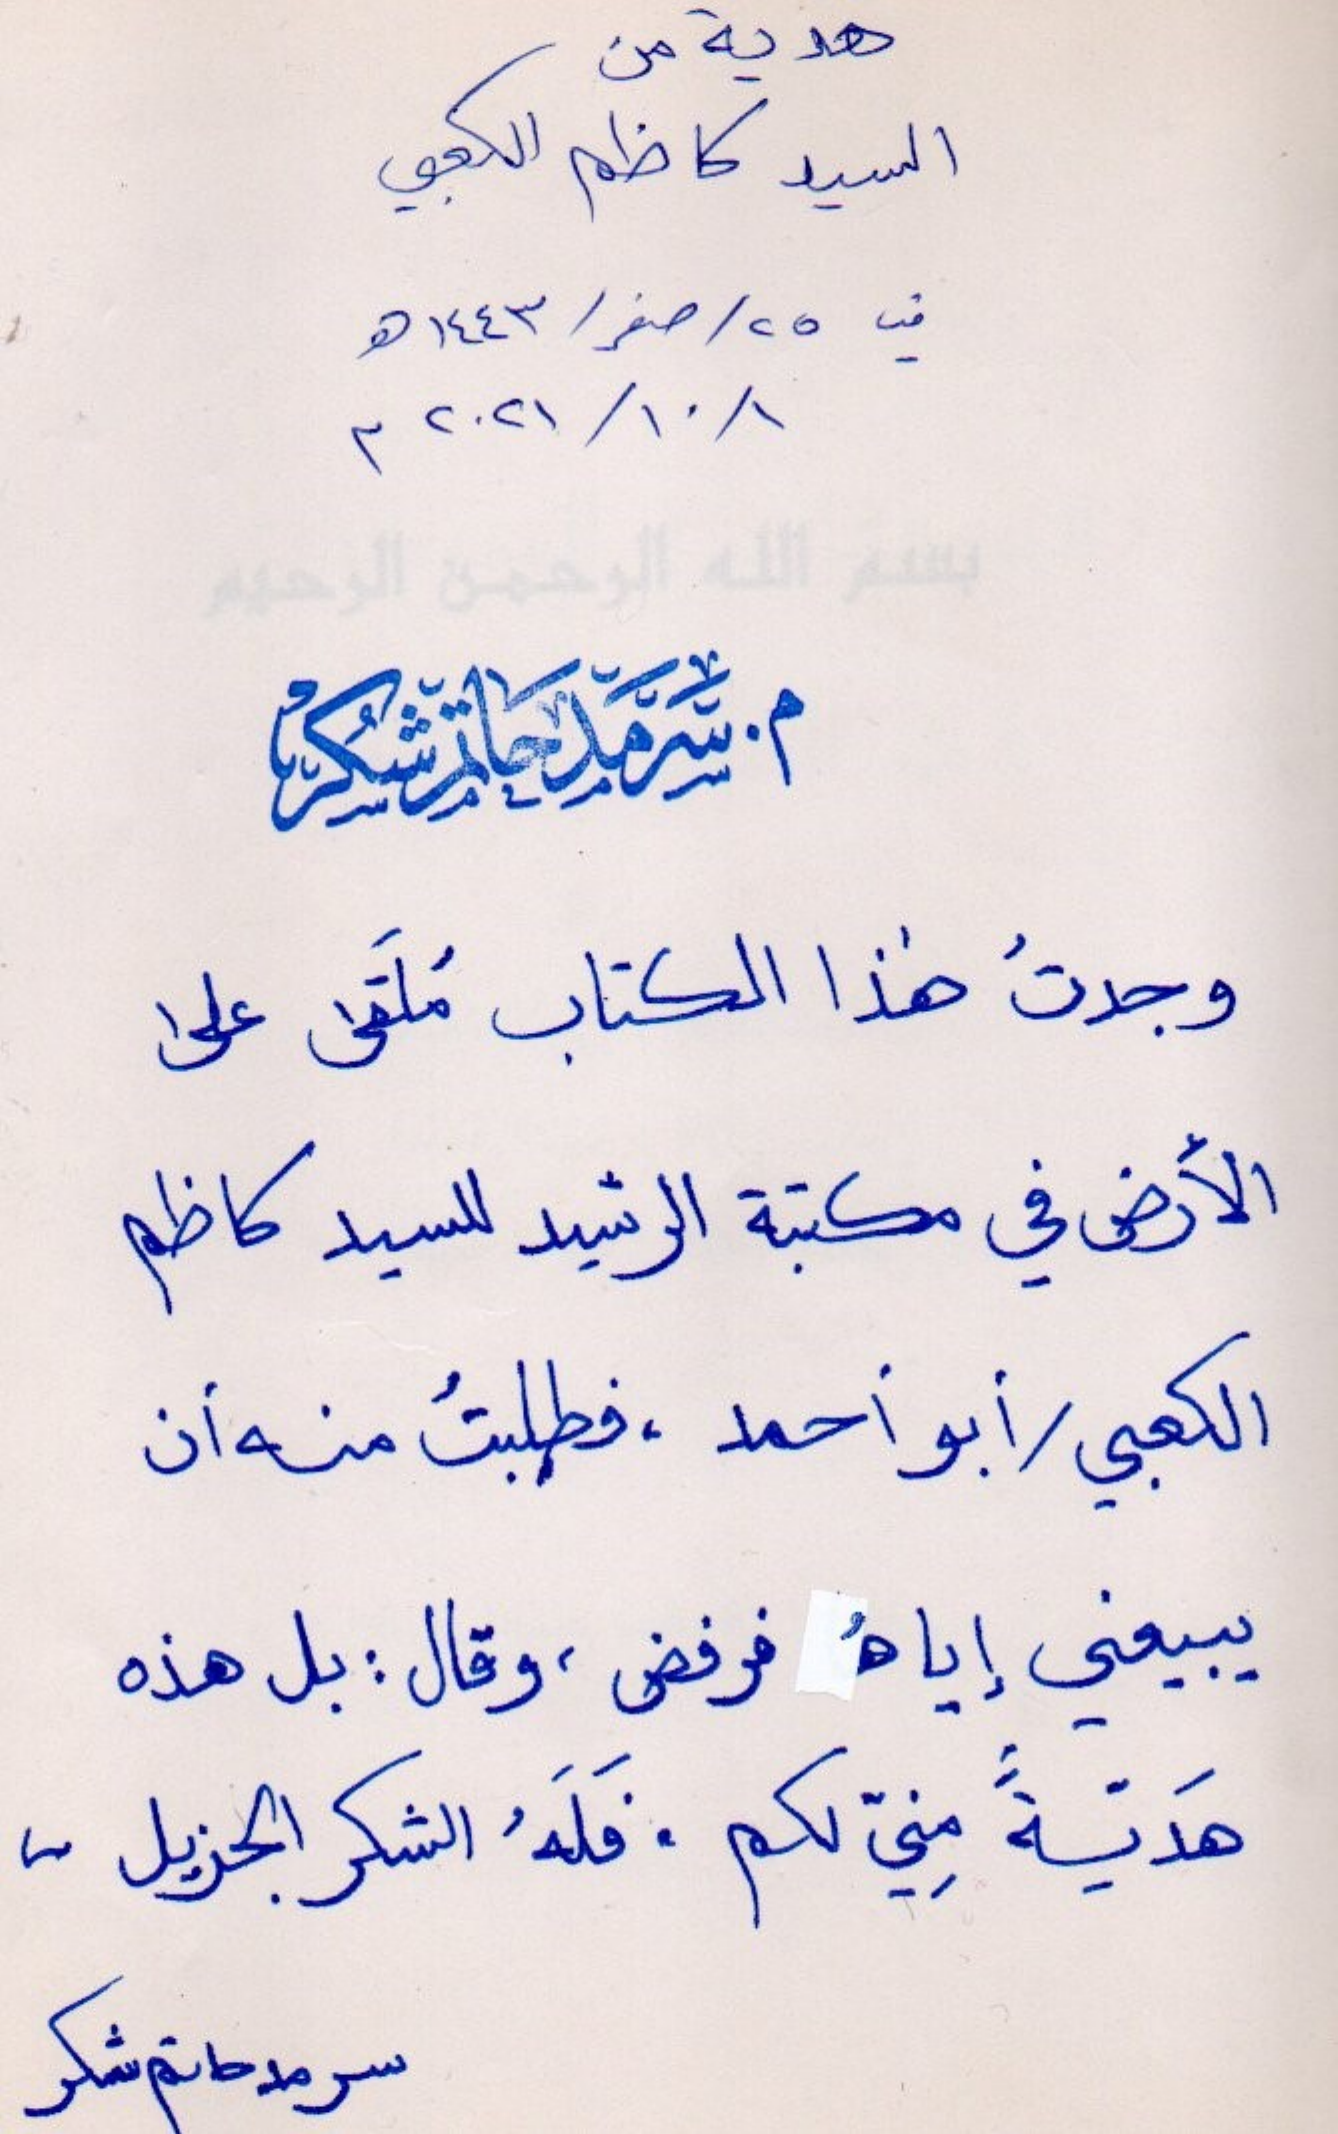 هدية من
السيد كاظم الكعبي
في ٢٥/صفر/١٤٤٣ هـ
١٠/١/ ٢٠٢١ م
بسم الله الرحمن الرحيم
م. سَرمَد حَاتم شُكر
وجدتُ هٰذا الكتاب مُلقَى على
الأرض في مكتبة الرشيد للسيد كاظم
الكعبي/أبو أحمد ، فطلبتُ منه أن
يبيعني إياهُ فرفض ، وقال : بل هذه
هَديّةً مِنيّ لكم . فَلَهُ الشكر الجزيل ~
سرمد حاتم شكر